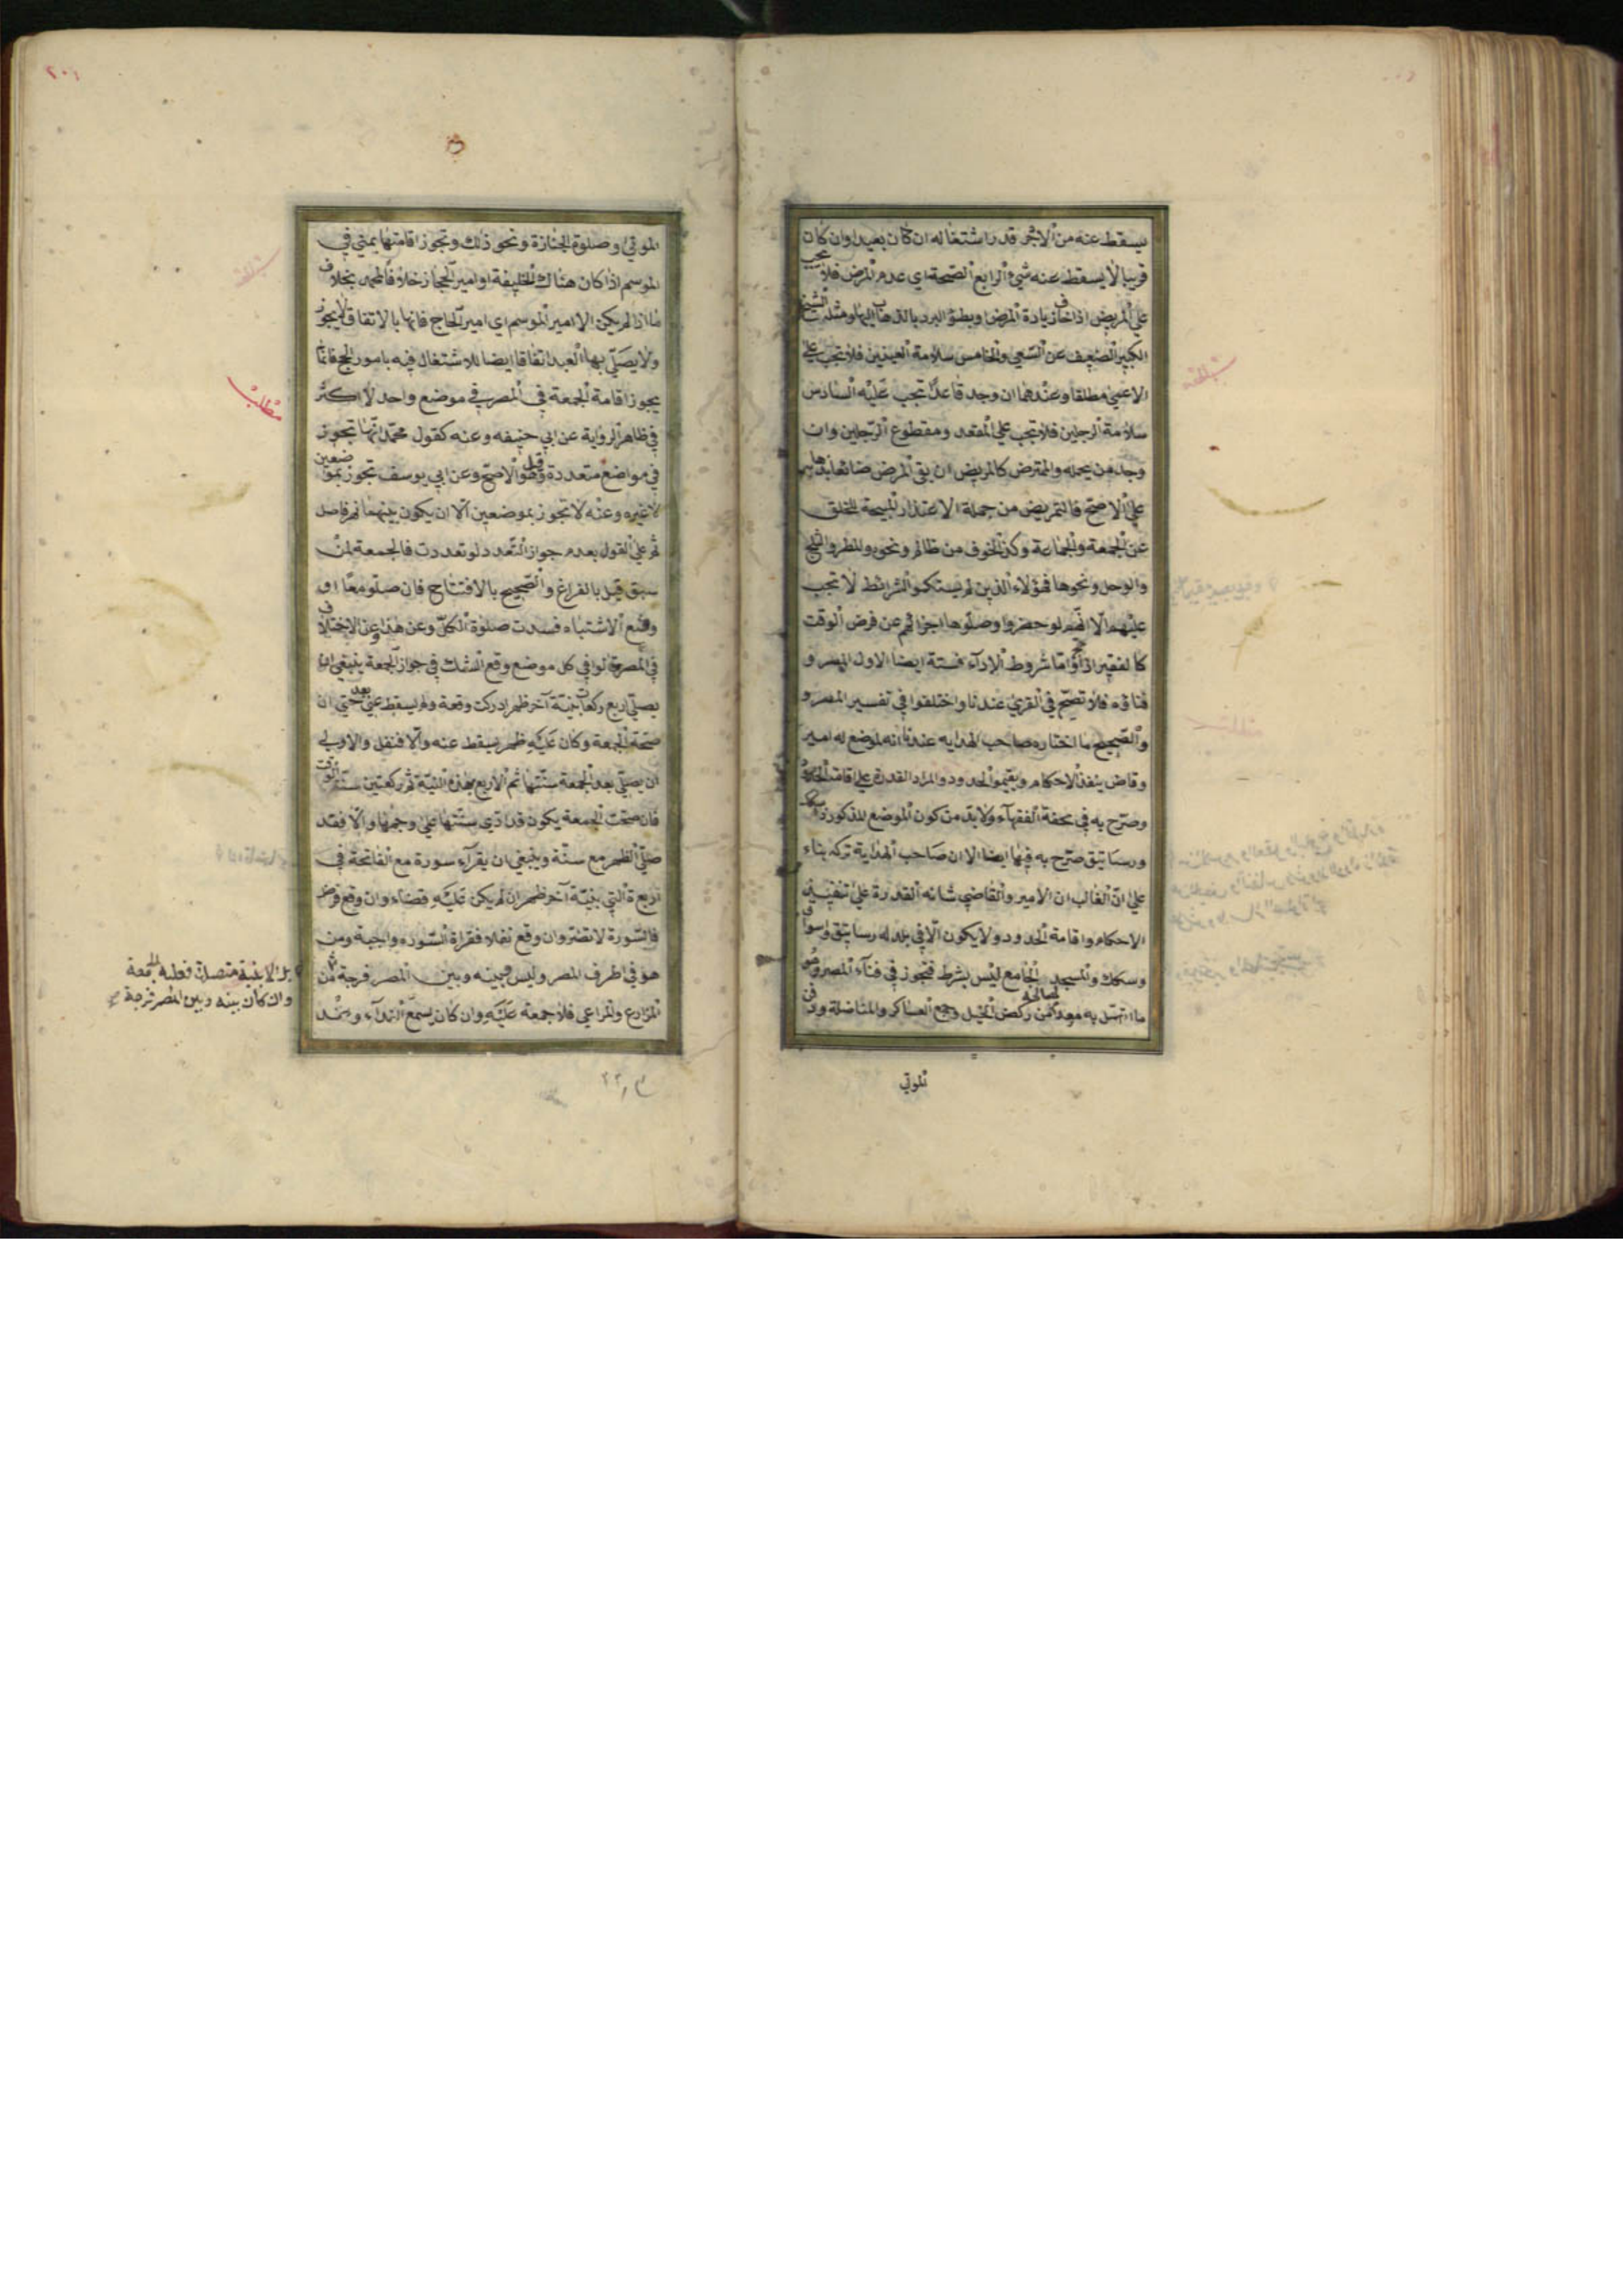 يسقط عنه من الاجر قدر اشتغاله ان كان بعيدا وان كان
قريبا لا يسقط عنه شئ والرابع الصحة اى عدم المرض فلا تجب
على المريض اذا خاف زيادة المرض او بطؤ البرد بالذهاب اليها ومثله الشيخ
الكبير الضعيف عن السعى والخامس سلامة العينين فلا تجب على
الاعمى مطلقا وعندهما ان وجد قائدا تجب عليه السادس
سلامة الرجلين فلا تجب على المقعد ومقطوع الرجلين وان
وجد من يحمله والممرض كالمريض ان بقى المرض ضائعا بذهابه
على الاصح فالتمريض من جملة الاعتذار المبيحة للتخلف
عن الجمعة والجماعة وكذا الخوف من ظالم ونحوه والمطر والثلج
والوحل ونحوها فهؤلاء الذين لم يستكملوا الشرائط لا تجب
عليهم الا انهم لو حضروا وصلوها اجزائهم عن فرض الوقت
كالفقير اذا حج واما شروط الادآء فستة ايضا الاول المصر و
فناؤه فلا تصح فى القرى عندنا واختلفوا فى تفسير المصر و
والصحيح ما اختاره صاحب الهدايه عندنا انه موضع له امير
وقاض ينفذ الاحكام ويقيموا الحدود والمراد القدرة على اقامة الحدود
وصرح به فى تحفة الفقهآء ولا بد من كون الموضع المذكور ذا سكك
ورساتيق صرح به فيها ايضا الا ان صاحب الهداية تركه بناء
على ان الغالب ان الامير والقاضى شانه القدرة على تنفيذ
الاحكام واقامة الحدود ولا يكون الا فى بلد له رساتيق واسواق
وسكك والمسجد الجامع ليس بشرط فتجوز فى فنآء المصر وهو
ما اتصل به معدا لمصالحه من ركض الخيل وجمع العساكر والمناضلة ودفن
الموتى
الموتى وصلوة الجنازة ونحو ذلك وتجوز اقامتها بمنى فى
الموسم اذا كان هناك الخليفة او امير الحجاز خلافا لمحمد بخلاف
ما اذا لم يكن الا امير الموسم اى امير الحاج فانها بالاتفاق لا يجوز
ولا يصلى بها العيد اتفاقا ايضا للاشتغال فيه بامور الحج فانما
يجوز اقامة الجمعة فى المصر فى موضع واحد لا اكثر
فى ظاهر الرواية عن ابى حنيفه وعنه كقول محمد انها تجوز
فى مواضع متعددة قيل وهو الاصح وعن ابى يوسف تجوز بموضعين
لا غيره وعنه لا تجوز بموضعين الا ان يكون بينهما نهر فاصل
ثم على القول بعدم جواز التعدد لو تعددت فالجمعة لمن
سبق قيل بالفراغ والصحيح بالافتتاح فان صلو معا او
وقع الاشتباه فسدت صلوة الكل وعن هذا وعن الاختلاف
فى المصر قالوا فى كل موضع وقع الشك فى جواز الجمعة ينبغى ان
يصلى اربع ركعات بنية آخر ظهر ادركت وقته ولم يسقط عنى بعد حتى ان
صحة الجمعة وكان عليه ظهر يسقط عنه والا فنفل والاولى
ان يصلى بعد الجمعة سنتها ثم الاربع بهذه النية ثم ركعتين سنة الوقت
فان صحت الجمعة يكون قد ادى سنتها على وجهها والا فقد
صلى الظهر مع سنة وينبغى ان يقرآء سورة مع الفاتحة فى
اربعة التى بنية آخر ظهر ان لم يكن عليه قضاء وان وقع فرض
فالسورة لا تضر وان وقع نفلا فقراة السوره واجبة ومن
هو فى اطرف المصر وليس بينه وبين المصر فرجة من
المزارع والمراعى فلا جمعة عليه وان كان يسمع الندآء وعند
مطلب
بل الابنية متصلة فعليه الجمعة
وان كان بينه وبين المصر فرجة